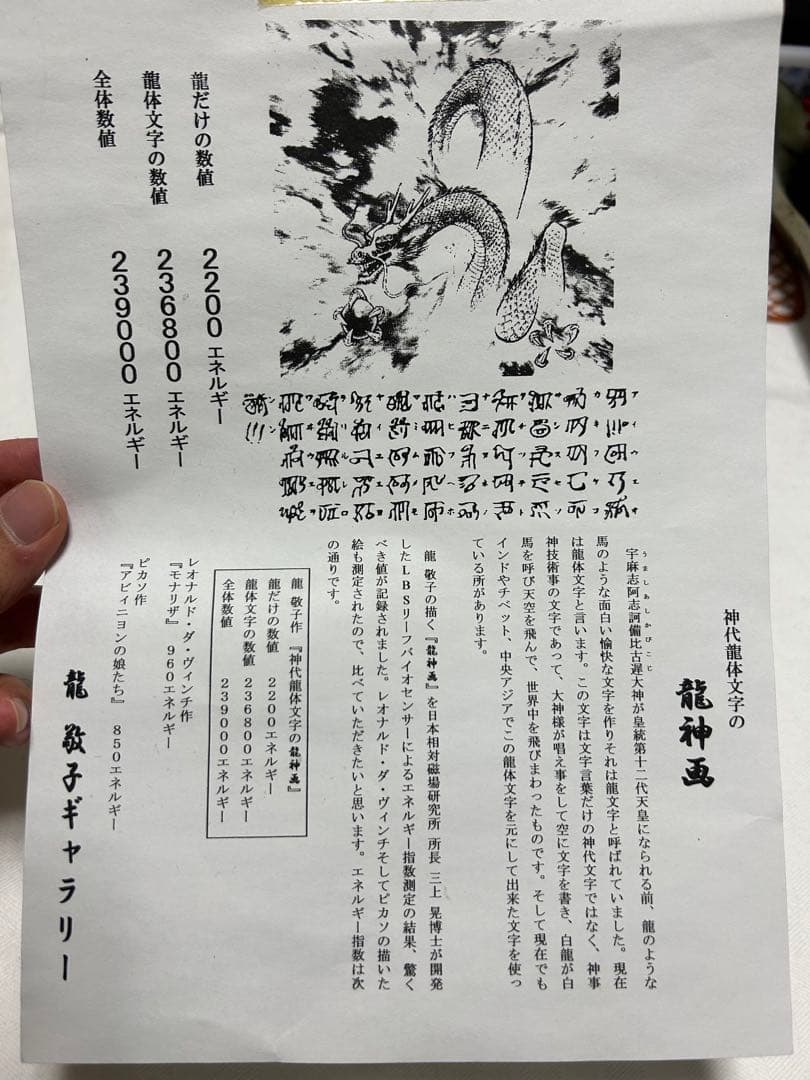 神代龍体文字の
龍神画
宇麻志阿志訶備比古遅大神が皇統第十二代天皇になられる前、龍のような
うましあしかびこじ
馬のような面白い愉快な文字を作りそれは龍文字と呼ばれていました。現在
は龍体文字と言います。この文字は文字言葉だけの神代文字ではなく、神事
神技術事の文字であって、大神様が唱え事をして空に文字を書き、白龍が白
馬を呼び天空を飛んで、世界中を飛びまわったものです。そして現在でも
インドやチベット、中央アジアでこの龍体文字を元にして出来た文字を使っ
ている所があります。
龍 敬子の描く『龍神画』を日本相対磁場研究所 所長 三上 晃博士が開発
したLBSリーフバイオセンサーによるエネルギー指数測定の結果、驚く
べき値が記録されました。レオナルド・ダ・ヴィンチそしてピカソの描いた
絵も測定されたので、比べていただきたいと思います。エネルギー指数は次
の通りです。
龍 敬子作 『神代龍体文字の龍神画』
龍だけの数値 2200エネルギー
龍体文字の数値 236800エネルギー
全体数値 239000エネルギー
レオナルド・ダ・ヴィンチ作
『モナリザ』 960エネルギー
ピカソ作
『アビィニヨンの娘たち』 850エネルギー
龍 敬子ギャラリー
龍だけの数値 2200エネルギー
龍体文字の数値 236800エネルギー
全体数値 239000エネルギー